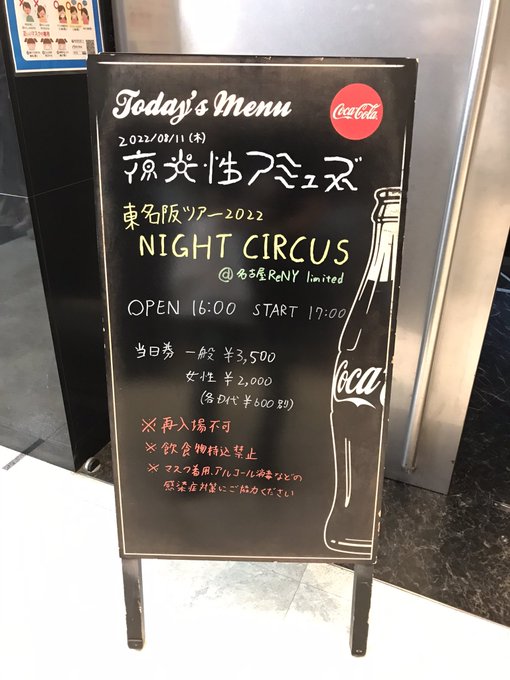 Today's Menu
Coca-Cola
2022/08/11(木)
夜光性アミューズ
東名阪ツアー2022
NIGHT CIRCUS
@名古屋ReNY limited
OPEN 16:00 START 17:00
当日券 一般 ¥3,500
女性 ¥2,000
(各D代¥600別)
Coca
※再入場不可
※飲食物持込禁止
※マスク着用、アルコール消毒などの
感染症対策にご協力ください